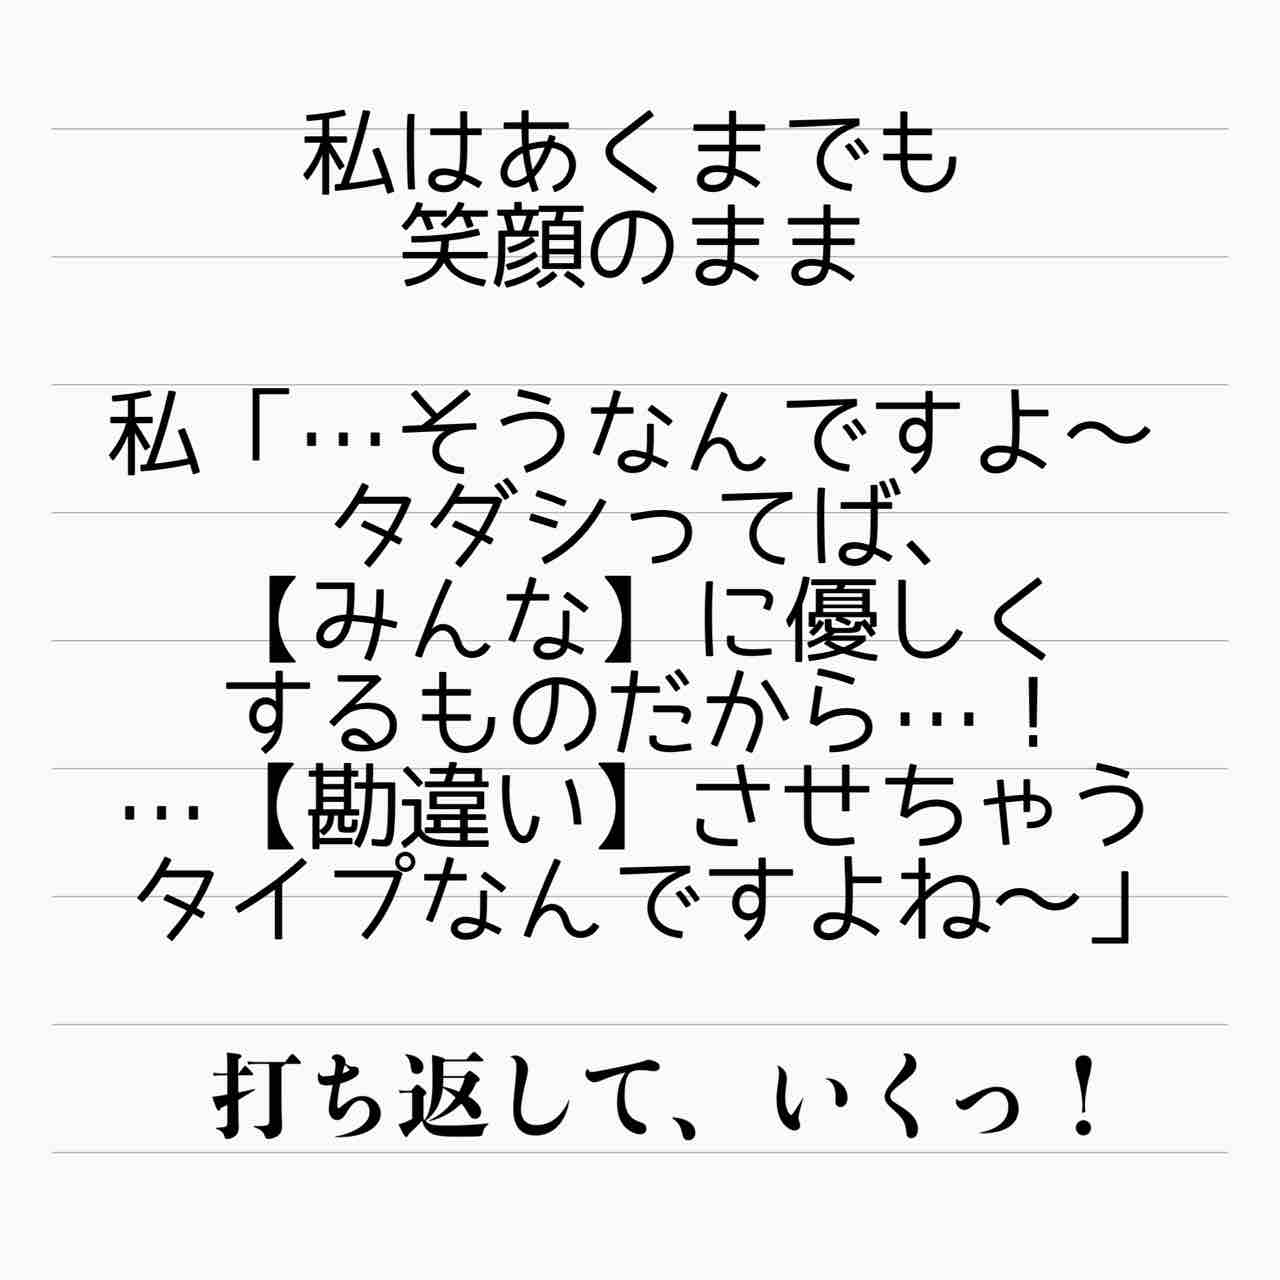 私はあくまでも
笑顔のまま
私「…そうなんですよ〜
タダシってば、
【みんな】に優しく
するものだから…！
…【勘違い】させちゃう
タイプなんですよね〜」
打ち返して、いくっ！